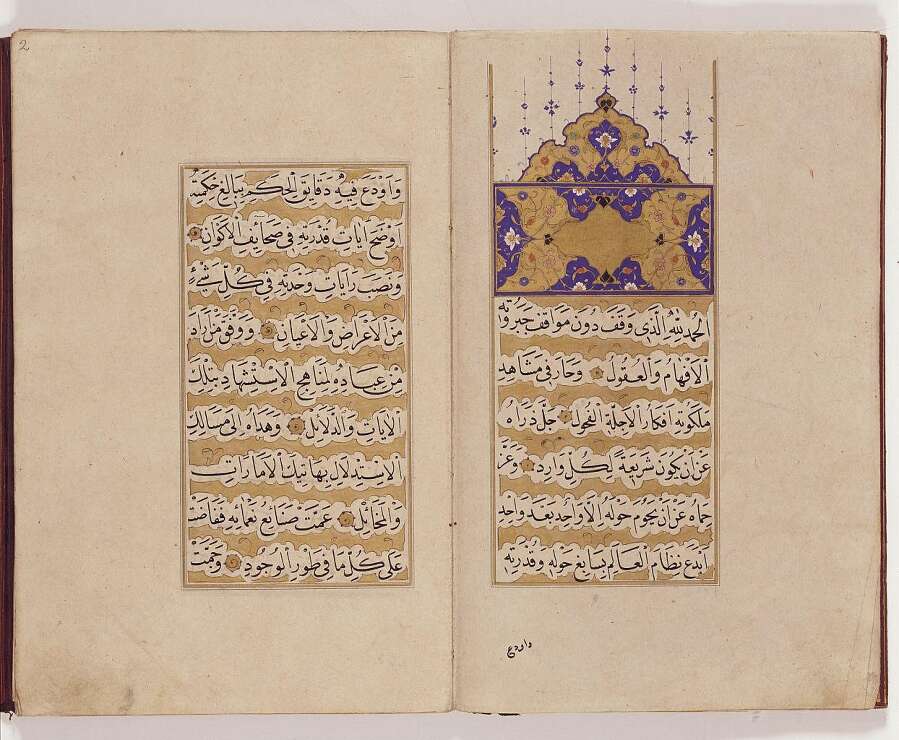 الحَمْدُ لِلّٰهِ الَّذِي وَقَفَ دُونَ مَوَاقِفِ جَبَرُوتِهِ
الْاَفْهَامُ وَالْعُقُولُ وَحَارَ فِي مَشَاهِدِ
مَلَكُوتِهِ اَفْكَارُ الْاَجِلَّةِ الْفُحُولِ جَلَّ ذَرَاهُ
عَنْ اَنْ يَكُونَ شَرِيعَةً لِكُلِّ وَارِدٍ وَعَزَّ
حِمَاهُ عَنْ اَنْ يَحُومَ حَوْلَهُ اِلَّا وَاحِدٌ بَعْدَ وَاحِدٍ
اَبْدَعَ نِظَامَ الْعَالَمِ بِسَابِغِ حَوْلِهِ وَقُدْرَتِهِ
واودع
2
وَاَوْدَعَ فِيهِ دَقَايِقَ الْحِكَمِ بِبَالِغِ حِكْمَتِهِ
اَوْضَحَ آيَاتِ قُدْرَتِهِ فِي صَحَايِفِ الْاَكْوَانِ
وَنَصَبَ رَايَاتِ وَحْدَتِهِ فِي كُلِّ شَيْءٍ
مِنَ الْاَعْرَاضِ وَالْاَعْيَانِ وَوَفَّقَ مَنْ اَرَادَ
مِنْ عِبَادِهِ لِمَنَاهِجِ الْاِسْتِشْهَادِ بِتِلْكَ
الْايَاتِ وَالدَّلَائِلِ وَهَدَاهُ اِلَى مَسَالِكِ
الْاِسْتِدْلَالِ بِهَاتِيكَ الْاَمَارَاتِ
وَالْمَخَائِلِ عَمَّتْ صَنَايِعُ نَعْمَائِهِ فَفَاضَتْ
عَلَى كُلِّ مَا فِي طَوْرِ الْوُجُودِ وَجَمَّتْ